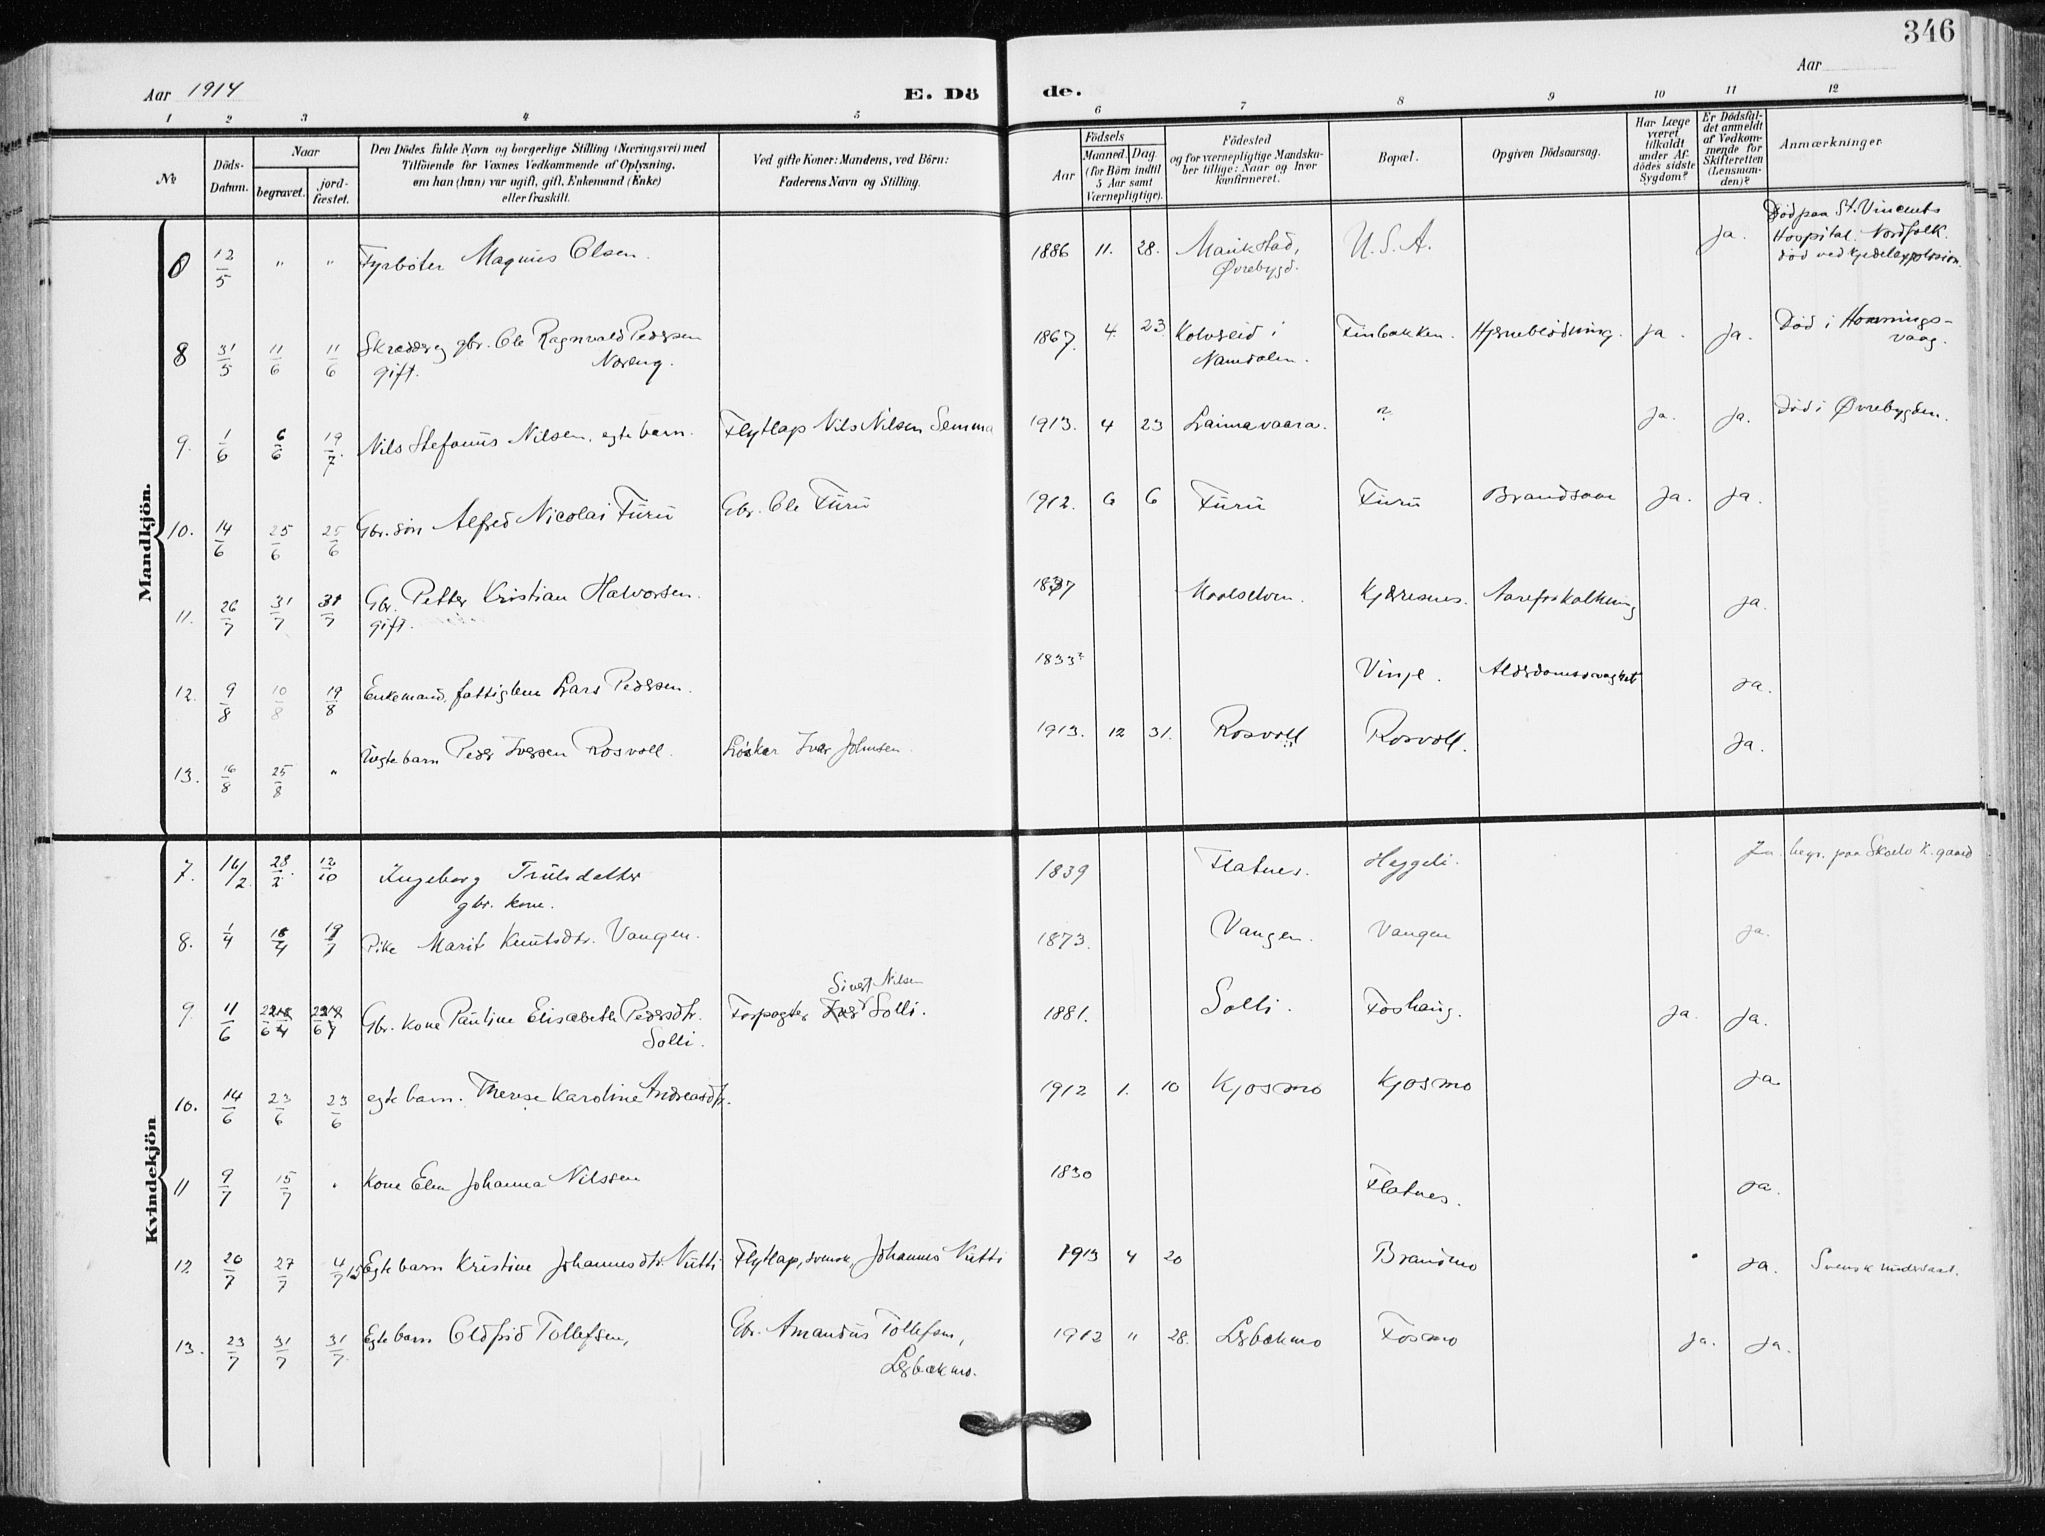 346
Aar 1914 E. Dö de. Aar
1 2 3 4 5 6 7 8 9 10 11 12
No
Döds-Datum.
Naar
begravet.
jord-fæstet.
Den Dödes fulde Navn og borgerlige Stilling (Næringsvei) med
Tilföiende for Voxnes Vedkommende af Oplysning,
om han (hun) var ugift, gift, Enkemand (Enke)
eller fraskilt.
Ved gifte Koner: Mandens, ved Börn:
Faderens Navn og Stilling.
Födsels
Aar
Maaned. Dag.
(for Börn indtil
5 Aar samt
Værnepligtige).
Födested
og for værnepligtige Mandska-
ber tillige: Naar og hvor
konfirmeret.
Bopæl.
Opgiven Dödsaarsag.
Har Læge
været
tilkaldt
under Af-
dödes sidste
Sygdom?
Er Dödsfal-
det anmeldt
af Vedkom-
mende for
Skifteretten
(Lensman-
den)?
Anmærkninger
Mandkjön.
0 12/5 " " Fyrböter Magnus Olsen. 1886 11. 28. Øvrebygd. U.S.A. Ja. Död paa St. Vincents
Hospital. Nordfolk.
död ved kjedelexplosion.
8 31/5 11/6 11/6 Skrædder og gbr. Ole Ragnvald Pedersen
gift. Noreng. 1867. 4. 23 Kolvereid i
Namdalen. Finbakken. Hjerneblödning. Ja. Ja. Död i Honnings-
vaag.
9. 1/6 6/6 19/7. Nils Stefanus Nilsen, egte barn. Flytlap Nils Nilsen Semma 1913. 4 23 Lainavaara. ? Ja. Ja. Död i Øvrebygden.
10. 14/6 25/6 25/6 Gbr. sön Alfred Nicolai Furu Gbr. Ole Furu 1912. 6 6 Furu Furu Brandsaar Ja. Ja.
11. 26/7 31/7 31/7 Gbr. Petter Kristian Halvorsen.
gift. 1837 Maalselven. Kjærresnes. Aareforkalkning Ja.
12. 9/8 10/8 19/8 Enkemand, fattiglem Lars Pedersen. 1833? Vinje. Alderdomssvaghet Ja.
13. 16/8 25/8 " Uegte barn Peder Iversen Rosvoll. Löskar Ivar Johnsen. 1913. 12 31. Rosvoll Rosvoll. Ja.
Kvindekjön
7. 16/2. 28/2 12/10 Ingeborg Trulsdatter
gbr. kone. 1839 Flatnes. Heggeli. Ja. begr. paa K. gaard
8. 1/4 18/4 19/7 Pike Marit Knutsdtr. Vangen. 1873. Vangen. Vangen Ja.
9 11/6 Gbr. kone Pauline Elisabeth Pedersdtr.
Solli. Sivert Nilsen
Forpagter Solli. 1881. Solli. Foshaug. Ja. Ja.
10. 14/6 23/6 23/6 egte barn. Therese Karoline Andreasdtr. 1912 1. 10 Kjosmo Kjosmo Ja
11 9/7 15/7 . Kone Elen Johanna Nilssen 1830 Flatnes. Ja.
12 20/7 27/7 Egte barn Kristine Johannesdtr. Nutti Flytlap, svensk, Johannes Nutti 1913 4 20 Brandmo Ja. Svensk undersaat.
13. 23/7 31/7 31/7. Egte barn Oldfrid Tollefsen, Gbr. Amandus Tollefsen,
Leibakmo. 1912 " 28. Leibakmo Fosmo Ja. Ja.